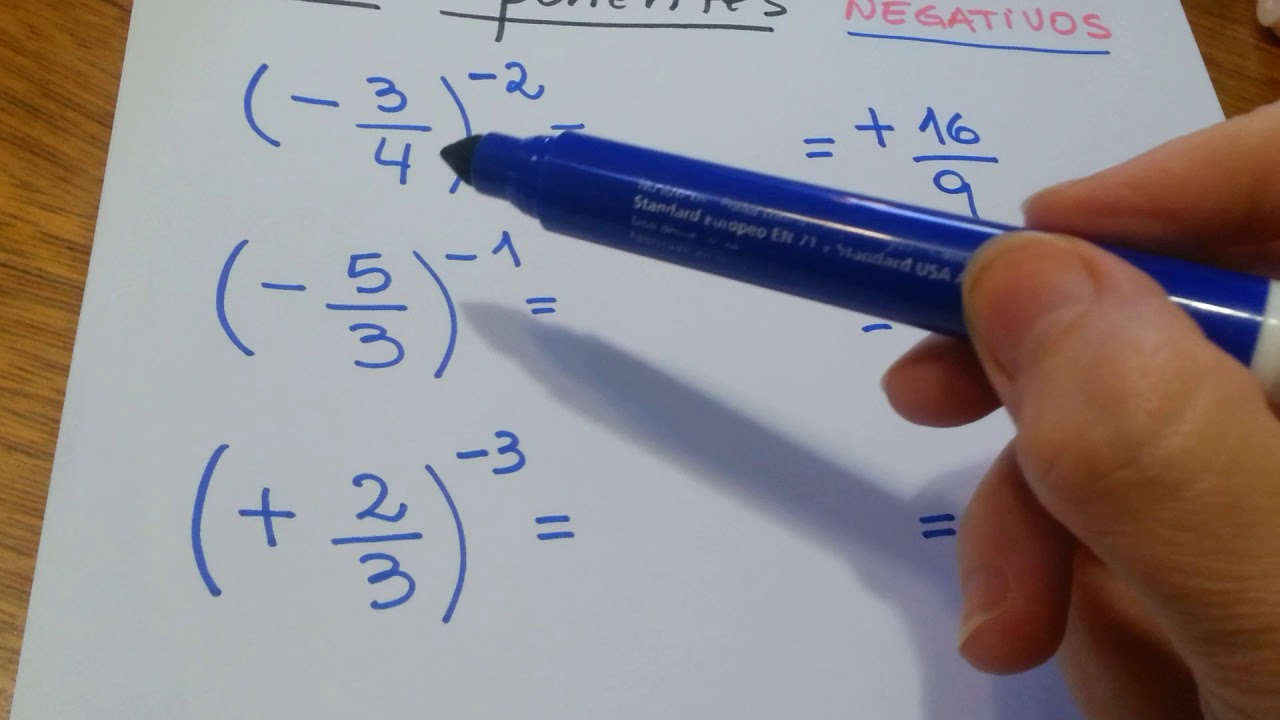 ponentes NEGATIVOS
(- 3/4)^-2 = = + 16/9
Standard Europeo EN 71 y Standard USA
(- 5/3)^-1 =
(+ 2/3)^-3 = =